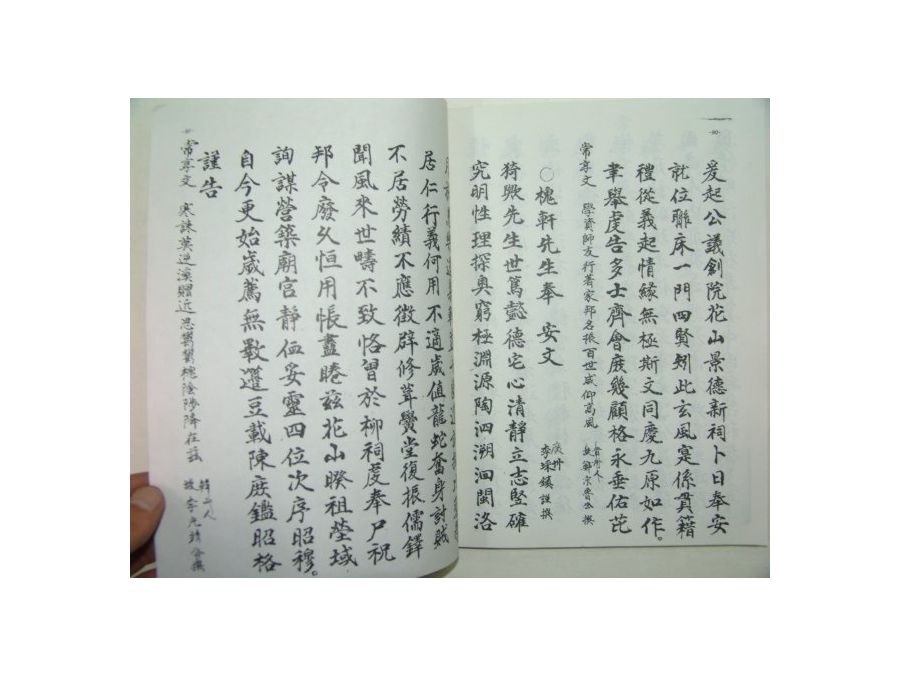 -90-
爰起公議創院花山景德新祠卜日奉安
就位聯床一門四賢矧此玄風寔係貫籍
禮從義起情緣無極斯文同慶九原如作。
聿擧虔告多士齊會庶幾顧格永垂佑芘
常享文 學資師友行著家邦名振百世咸仰高風
○槐軒先生奉 安文
猗歟先生世篤懿德宅心淸靜立志堅確
究明性理探奧窮極淵源陶泗溯洄閩洛
居仁行義何用不適歲値龍蛇奮身討賊
不居勞績不應徵辟修葺黌堂復振儒鐸
聞風來世疇不致恪曾於柳祠虔奉尸祝
邦令廢久恒用悵盡睠玆花山睽祖塋域
詢謀營築廟宮靜侐妥靈四位次序昭穆。
自今更始歲薦無斁籩豆載陳庶鑑昭格
謹告
常享文 寒洙英逆漢贈近思
槐陰陟降在玆